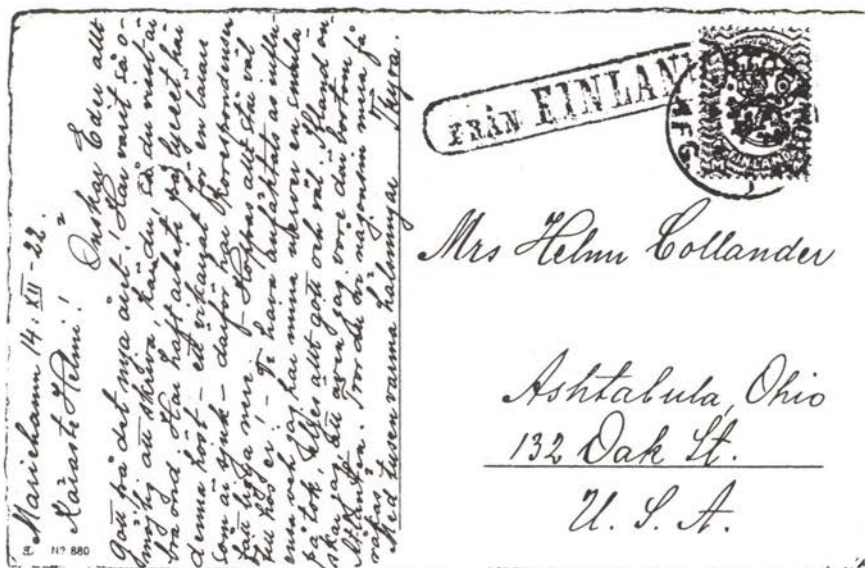 Mariehamn 14: XII - 22.
Käraste Helmi!
Önskar Eder allt
gott på det nya året! Har varit så o-
möjlig att skriva, kan du, så du visst är
bra ond. Har haft arbete på lyceet här
denna höst – ett vikariat för en lärare
som är sjuk – därför har korrespondensen
fått ligga nere. Hoppas allt står väl
till hos er! – Vi hava anfäktats av influ-
ensa och jag har mina nerver en smula
på tok, eljes allt gott och väl. Ibland ön-
skar jag att även jag vore där bortom
Atlanten. Tror du vi någonsin mera få
råkas?
Med tusen varma hälsningar Thyra.
N:o 880
FRÅN FINLAND
FINLAND
Mrs Helmi Collander
Ashtabula, Ohio
132 Oak St.
U. S. A.